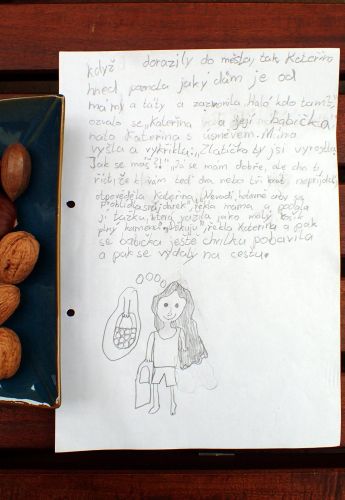 když dorazily do města, tak Kateřina
hned poznala jaký dům je od
mámy a táty a zazvonila. „Haló kdo tam?“,
ozvalo se. „Kateřina a její babička“,
 Kateřina s úsměvem. Máma
vyšla a vykřikla: „Zlatíčko ty jsi vyrostla.
Jak se máš?“ „Já se mám dobře, ale chci ti
říct, že k vám teď dva nebo tři
odpověděla Kateřina. „Nevadí,
 řekla máma a podala
jí tašku, která
plný kamenů. „Děkuji“, řekla Kateřina a pak
se babička ještě chvilku pobavila
a pak se vydaly na cestu.